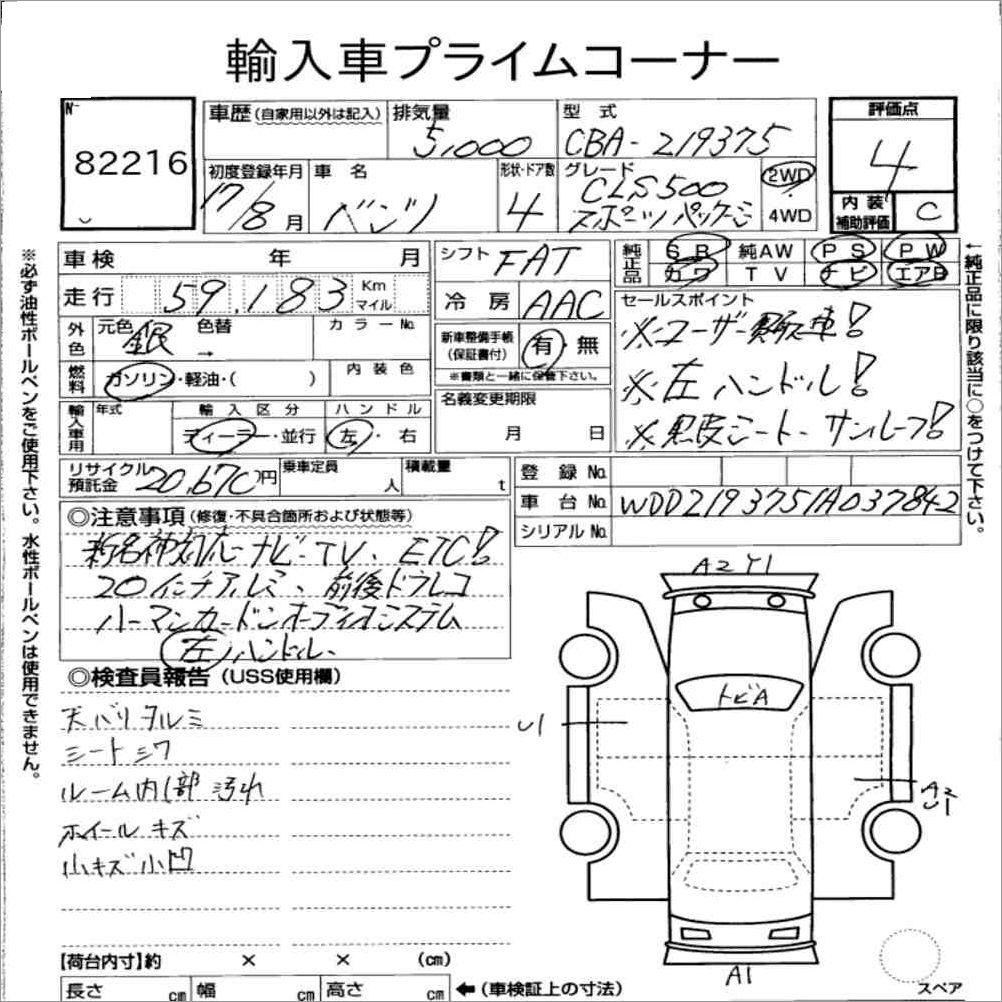 輸入車プライムコーナー
№
82216
車歴 (自家用以外は記入)
排気量
5,000
型式
CBA-219375
評価点
4
初度登録年月
17/8月
車名
ベンツ
形状・ドア数
4
グレード
CLS500
スポーツパッケージ
2WD
4WD
内装
補助評価
C
車検 年 月
走行 59,183 Km
マイル
外色
元色 銀 色替 →
カラーNo.
燃料
ガソリン・軽油・( )
内装色
輸入車用
年式
輸入区分
ディーラー・並行
ハンドル
左・右
リサイクル
預託金
20,670円
乗車定員
人
積載量
t
シフト FAT
冷房 AAC
新車整備手帳
(保証書付)
有・無
※書類と一緒に保管下さい。
名義変更期限
月 日
純正品
SR 純AW PS PW
カワ TV ナビ エアB
セールスポイント
※ユーザー買取車!
※左ハンドル!
※黒皮シート、サンルーフ!
登録No.
車台No. WDD2193751A037842
シリアルNo.
←純正品に限り該当に○をつけて下さい。
※必ず油性ボールペンをご使用下さい。水性ボールペンは使用できません。
◎注意事項 (修復・不具合箇所および状態等)
新名神対応ナビ・TV、ETC!
20インチアルミ、前後ドラレコ
ハーマンカードンオーディオシステム
左ハンドル、
◎検査員報告 (USS使用欄)
天バリタルミ
シートシワ
ルーム内1部汚れ
ホイールキズ
小キズ小凹
A2 Y1
トビA
U1
A2
U1
A1
スペア
【荷台内寸】約 × × (cm)
長さ cm 幅 cm 高さ cm ←(車検証上の寸法)